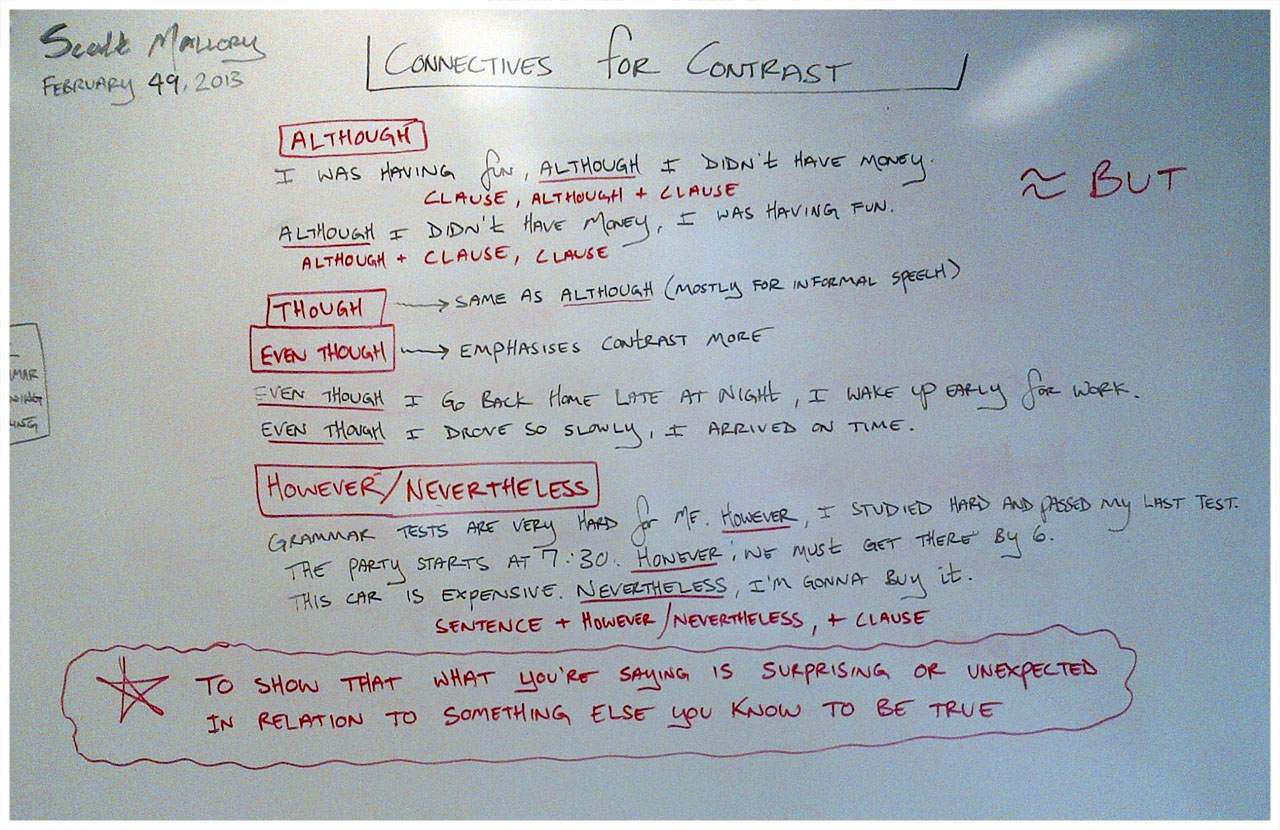 Scott Mallory
February 49, 2013
Connectives for Contrast
ALTHOUGH
I was having fun, ALTHOUGH I didn't have money.
CLAUSE, ALTHOUGH + CLAUSE
≈ BUT
ALTHOUGH I didn't have money, I was having fun.
ALTHOUGH + CLAUSE, CLAUSE
THOUGH → SAME AS ALTHOUGH (MOSTLY FOR INFORMAL SPEECH)
EVEN THOUGH → EMPHASISES CONTRAST MORE
EVEN THOUGH I GO BACK HOME LATE AT NIGHT, I WAKE UP EARLY FOR WORK.
EVEN THOUGH I DROVE SO SLOWLY, I ARRIVED ON TIME.
HOWEVER/NEVERTHELESS
GRAMMAR TESTS ARE VERY HARD for ME. HOWEVER, I STUDIED HARD AND PASSED MY LAST TEST.
THE PARTY STARTS AT 7:30. HOWEVER, WE MUST GET THERE BY 6.
THIS CAR IS EXPENSIVE. NEVERTHELESS, I'M GONNA BUY it.
SENTENCE + HOWEVER/NEVERTHELESS, + CLAUSE
TO SHOW THAT WHAT YOU'RE SAYING IS SURPRISING OR UNEXPECTED
IN RELATION TO SOMETHING ELSE YOU KNOW TO BE TRUE